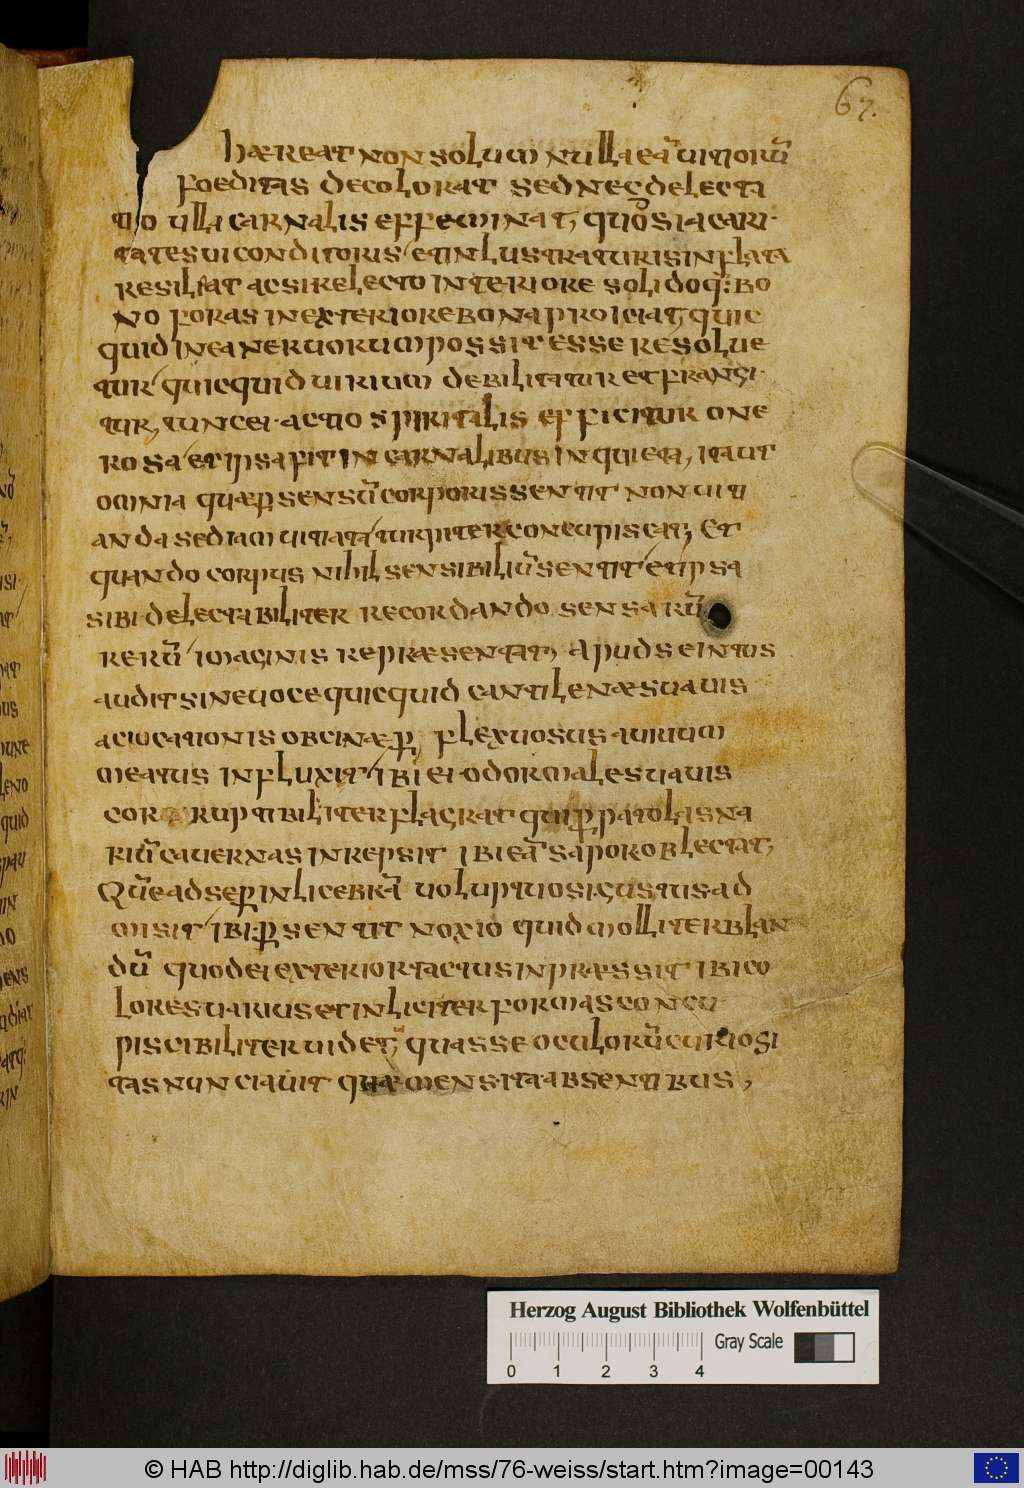 67.
haereat non solum nulla eā uitiorū
foeditas decolorat sed nec delecta
tio ulla carnalis effeminat, quo si a caru
tate sui conditoris et inlustratoris inflata
resiliat ac si relecto interiore solidoq: bo
no foras in exteriore bona proiciat, quic
quid in ea neruorum possit esse resolue
tur quicquid uirium debilitatur et frangi
tur, tunc ei actio spiritalis efficitur one
rosa et ipsa fit in carnalibus inquieta, ita ut
omnia quae p sensū corporis sentit non uiti
anda sed iam uitiata turpiter concupiscat, Et
quando corpus nihil sensibiliū sentit et ipsa
sibi delectabiliter recordando sensarū
rerū imaginis repraesentat, Apud se intus
audit sine uoce quicquid cantilenae suauis
aciucationis obcinae p flexuosus aurium
meatus influxit ibi ei odor male suauis
corruptibiliter flagrat qui p patolas na
riū cauernas inrepsit ibi eā sapor oblectat,
Quē ad se p inlicebrā uoluptuosi gustus ad
misit ibi p sentit noxio quid molliter blan
dū quod ei exterior tactus inpraessit ibi co
lores uarius et inliciter formas concu
piscibiliter uidet, quas se oculorū curiosi
tas nunciauit quae mens ita absentibus,
Herzog August Bibliothek Wolfenbüttel
Gray Scale
0 1 2 3 4
© HAB http://diglib.hab.de/mss/76-weiss/start.htm?image=00143